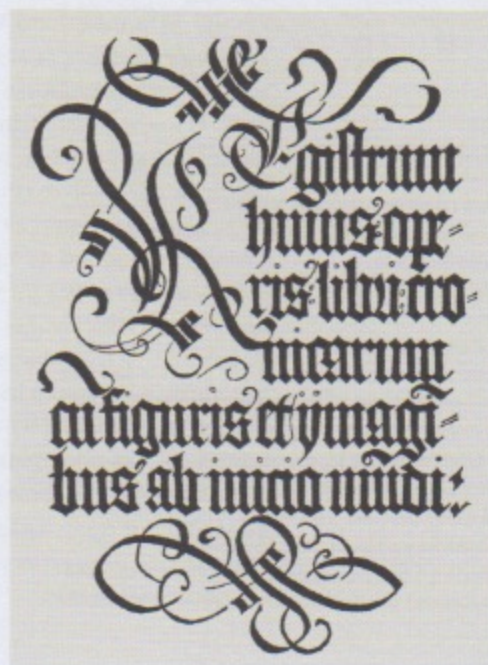 REgistrum
huius ope-
ris libri cro-
nicarum
cũ figuris et ymagi-
bus ab inicio mũdi: